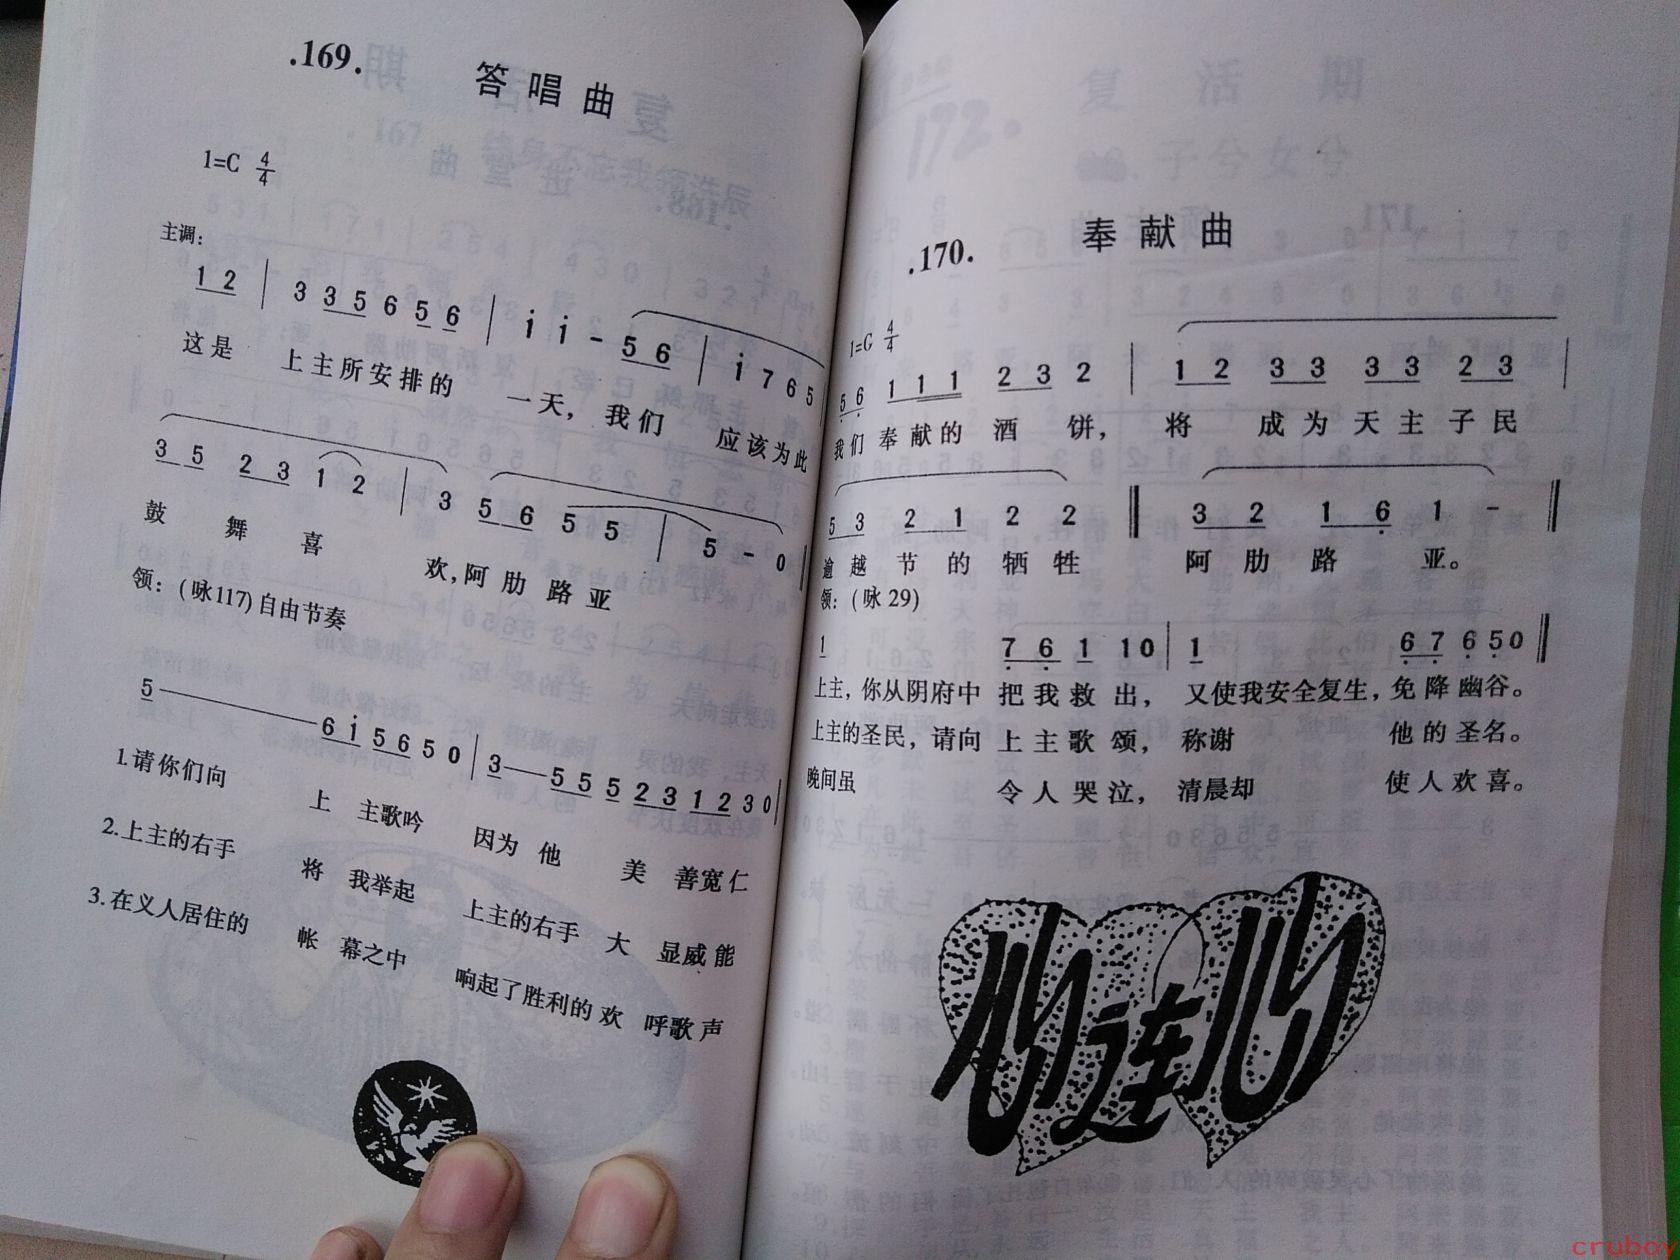 .169.
答唱曲
1=C 4/4
主调:
1 2 | 3 3 5 6 5 6 | i i - 5 6 | i 7 6 5
这是 上主所安排的 一天, 我们 应该为此
3 5 2 3 1 2 | 3 5 6 5 5 | 5 - 0
鼓 舞 喜 欢,阿 肋 路 亚
领: (咏117)自由节奏
5 —— 6 i 5 6 5 0 | 3 — 5 5 5 2 3 1 2 3 0
1.请你们向 上 主歌吟 因为 他 美 善宽仁
2.上主的右手 将 我举起 上主的右手 大 显威能
3.在义人居住的 帐 幕之中 响起了胜利的 欢 呼歌声
.170.
奉献曲
1=G 4/4
5 6 1 1 1 2 3 2 | 1 2 3 3 3 3 2 3 |
我们 奉献的 酒 饼, 将 成为天主子民
5 3 2 1 2 2 || 3 2 1 6 1 - ||
逾越 节的牺牲 阿肋 路 亚。
领: (咏29)
1 7 6 1 1 0 | 1 6 7 6 5 0 ||
上主,你从阴府中 把我救出, 又使我安全复生,免降幽谷。
上主的圣民,请向 上主歌颂, 称谢 他的圣名。
晚间虽 令人哭泣, 清晨却 使人欢喜。
心连心
172.
复活期
子兮女兮
cruboy